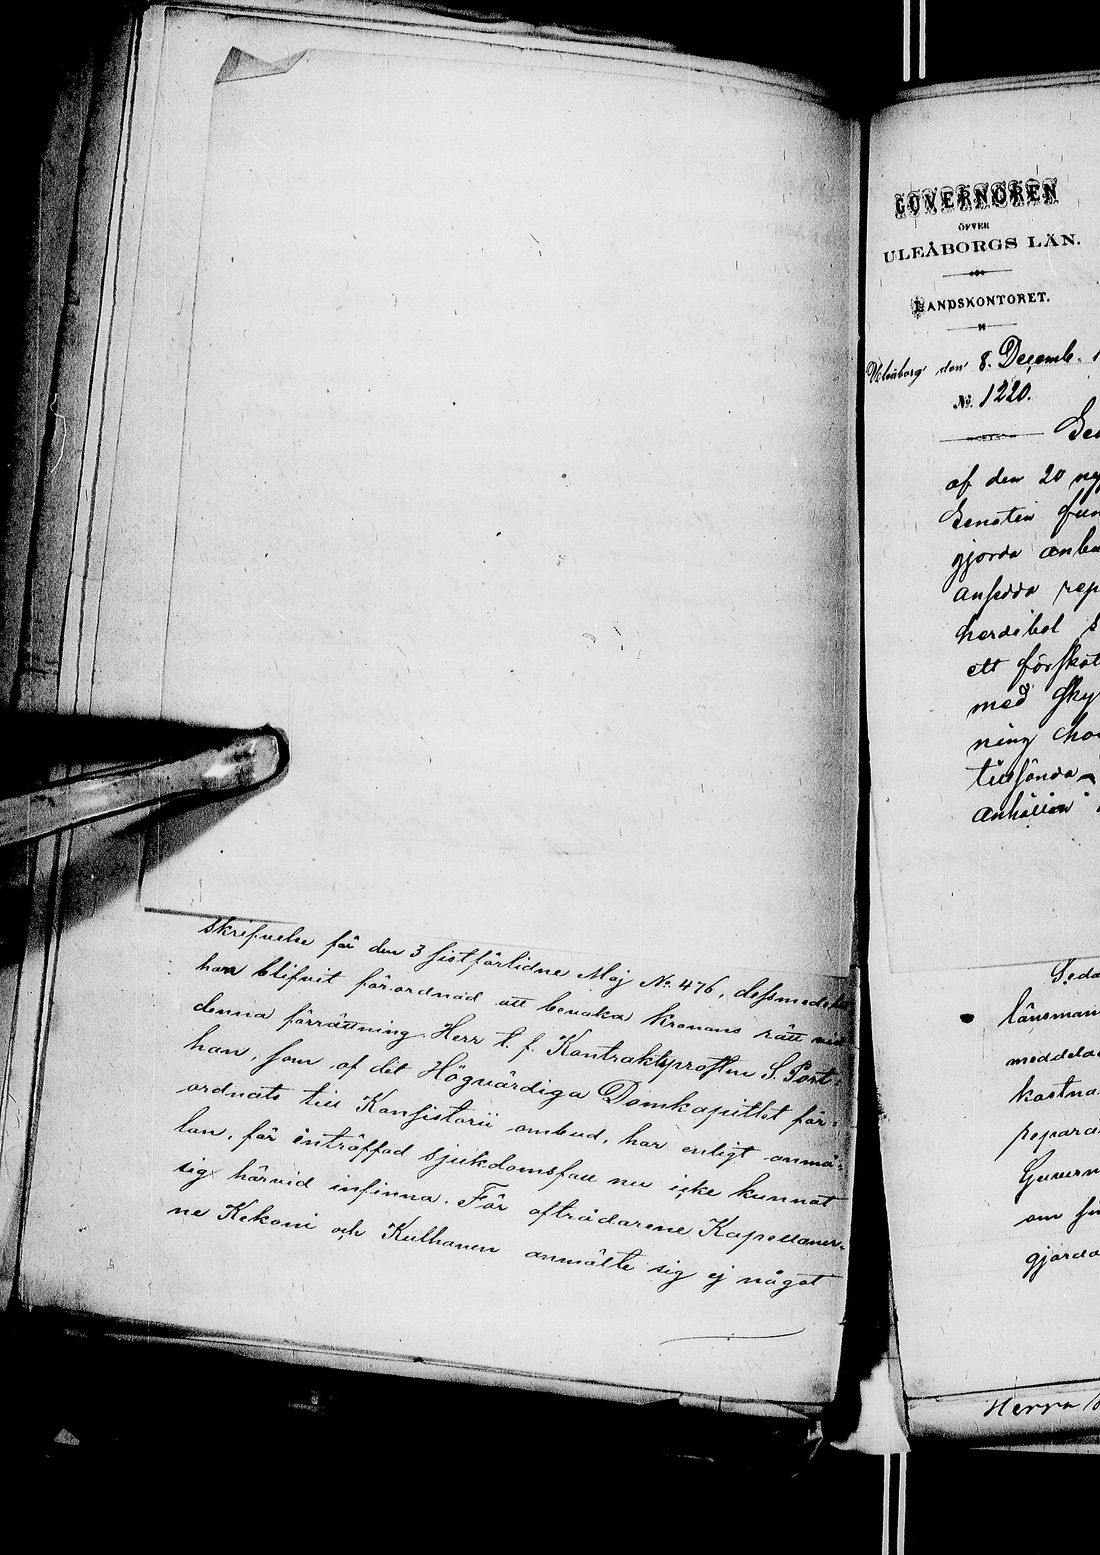 skrifvelse för den 3 sistförlidne Maj No 476, dessmedelst
han blifvit förordnad att bevaka kronans rätt vid
denna förrättning. Herr t. f. Kontraktsprosten S. Port-
han, som af det Högvärdiga Domkapitlet för-
ordnats till Konsistorii ombud, har enligt anmä-
lan, för inträffad sjukdomsfall nu icke kunnat
sig härvid infinna. För afträdarene Kapellaner-
ne Kekoni och Kulhanen anmälte sig ej något
GUVERNÖREN
ÖFVER
ULEÅBORGS LÄN.
LANDSKONTORET.
Uleåborg den 8. Decemb. 1
No. 1220.
af den 20
Senaten
gjorda
ansedda rep
herdebol s
ett förskot
med sky
ning
tillsända
anhållan
Seda
länsman
meddela
kostna
repara
Guvern
om
gjorda
Herra